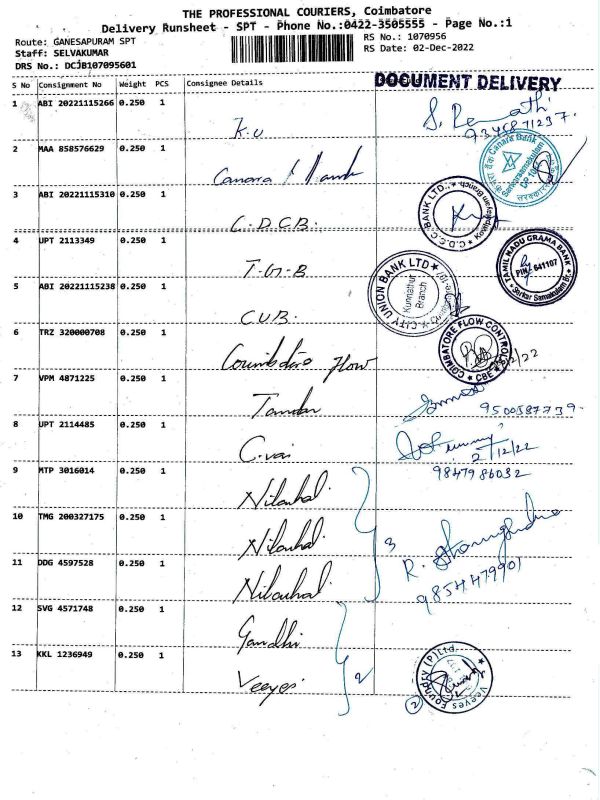 THE PROFESSIONAL COURIERS, Coimbatore
Delivery Runsheet - SPT - Phone No.:0422-3505555 - Page No.:1
Route: GANESAPURAM SPT
RS No.: 1070956
Staff: SELVAKUMAR
RS Date: 02-Dec-2022
DRS No.: DCJB107095601
S No Consignment No Weight PCS Consignee Details
DOCUMENT DELIVERY
1 ABI 20221115266 0.250 1 K.U
9345871237.
2 MAA 858576629 0.250 1 Canara
Canara Bank
3 ABI 20221115310 0.250 1 C.D.C.B.
C.D.C.C BANK LTD.,
4 UPT 2113349 0.250 1 T.G.B
TAMIL NADU GRAMA BANK
PIN: 641107
Sarkar Samakulam Br.
5 ABI 20221115238 0.250 1 C.U.B.
CITY UNION BANK LTD
Kunnathur
Branch
6 TRZ 320000708 0.250 1 Flow
COIMBATORE FLOW CONTROL
CBE
7 VPM 4871225 0.250 1
9500587739.
8 UPT 2114485 0.250 1 C.vai
2/12/22
9847986032
9 MTP 3016014 0.250 1 Nilauhal.
10 TMG 200327175 0.250 1 Nilauhal.
3
11 DDG 4597528 0.250 1 Nilauhal.
9854479901
12 SVG 4571748 0.250 1 Gandhi
13 KKL 1236949 0.250 1 Veeyes
2
Veeyes Foundry (P) Ltd.
2